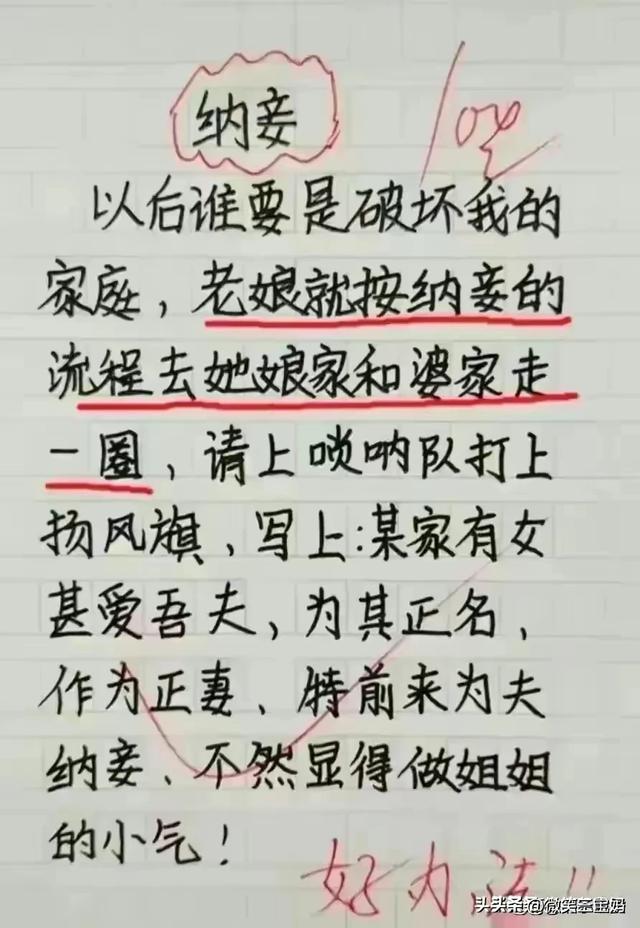 纳妾
以后谁要是破坏我的
家庭，老娘就按纳妾的
流程去她娘家和婆家走
一圈，请上唢呐队打上
扬风旗、写上:某家有女
甚爱吾夫，为其正名，
作为正妻、特前来为夫
纳妾、不然显得做姐姐
的小气！
好办法!!
头条@微笑三宝妈